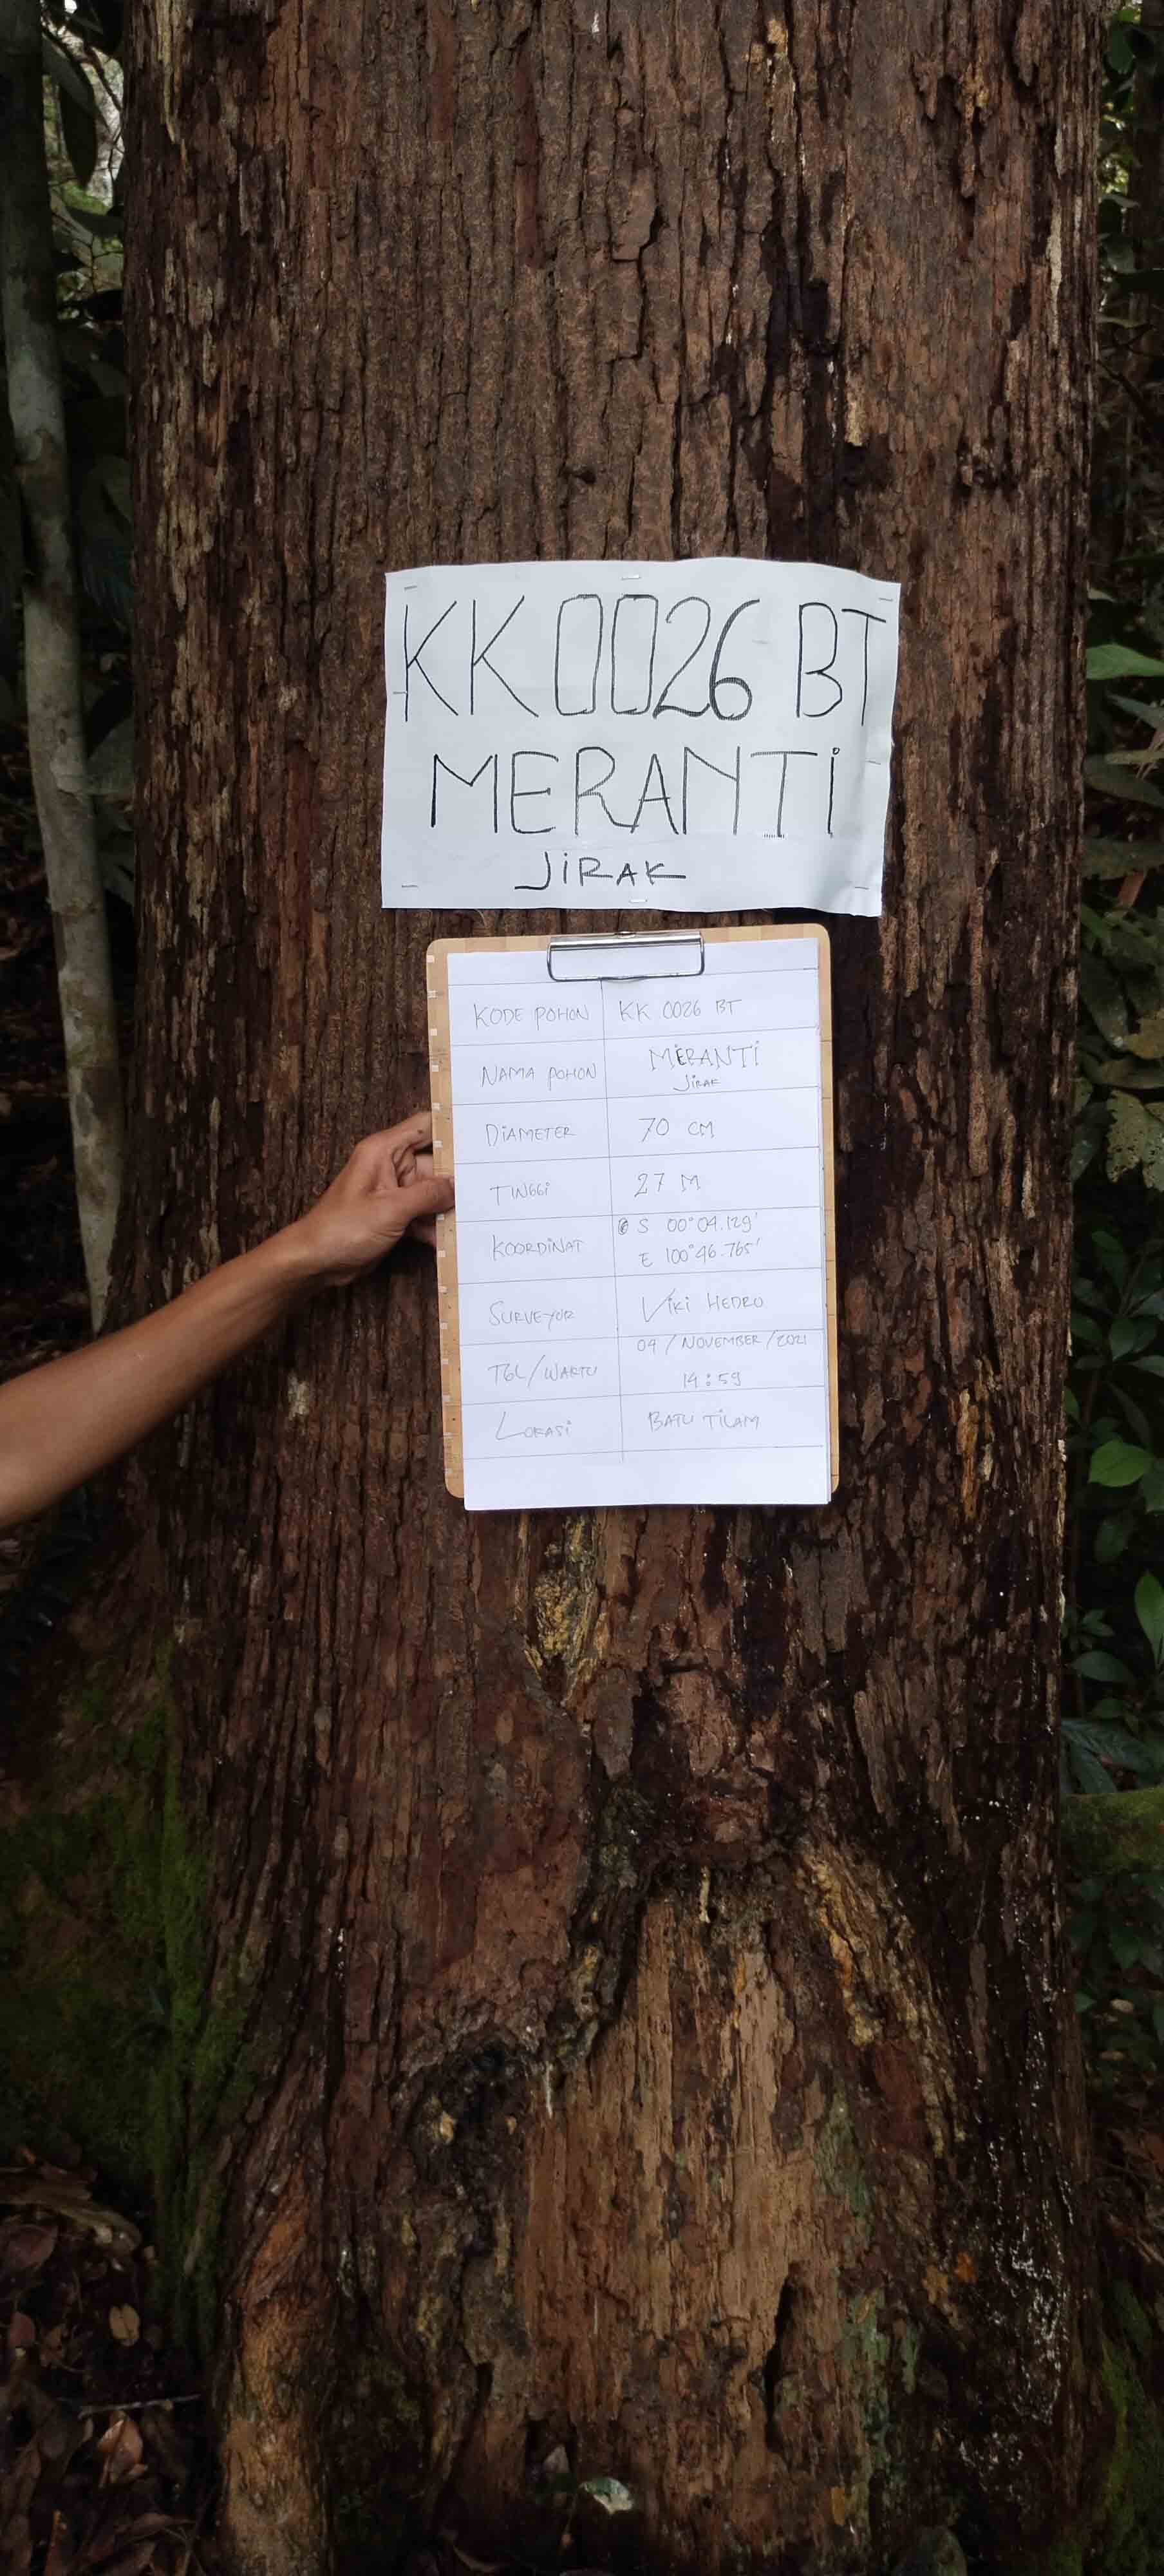 KK 0026 BT
MERANTi
JiRAK
KODE POHON KK 0026 BT
NAMA POHON MERANTi
JiRAK
DiAMETER 70 CM
TiNGGi 27 M
KOORDiNAT S 00°04.129'
E 100°46.765'
SURVEYOR ViKi HEDRO
TGL/WAKTU 04/NOVEMBER/2021
14:59
LOKASi BATU TiLAM